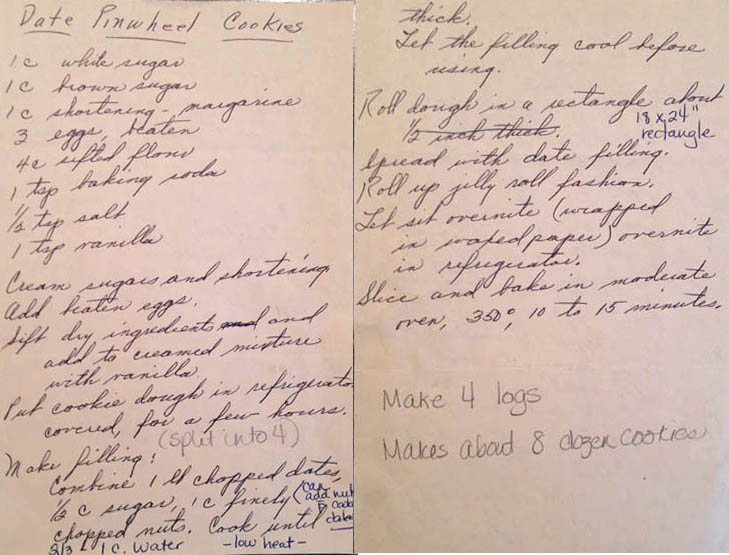 Date Pinwheel Cookies
1c white sugar
1c brown sugar
1c shortening - margarine
3 eggs, beaten
4c sifted flour
1 tsp baking soda
1/2 tsp salt
1 tsp vanilla
Cream sugars and shortening.
Add beaten eggs.
Sift dry ingredients and
add to creamed mixture
with vanilla.
Put cookie dough in refrigerator
covered, for a few hours.
(split into 4)
Make filling:
Combine 1 lb chopped dates,
1/2 c sugar, 1c finely (can
add nuts
chopped nuts. Cook until
2/3 - 1 c. Water - low heat -
thick.
Let the filling cool before
using.
Roll dough in a rectangle about
1/2 inch thick. 18 x 24"
rectangle
Spread with date filling.
Roll up jilly roll fashion.
Let set overnite (wrapped
in waxed paper) overnite
in refrigerator.
Slice and bake in moderate
oven, 350°, 10 to 15 minutes.
Make 4 logs
Makes about 8 dozen cookies